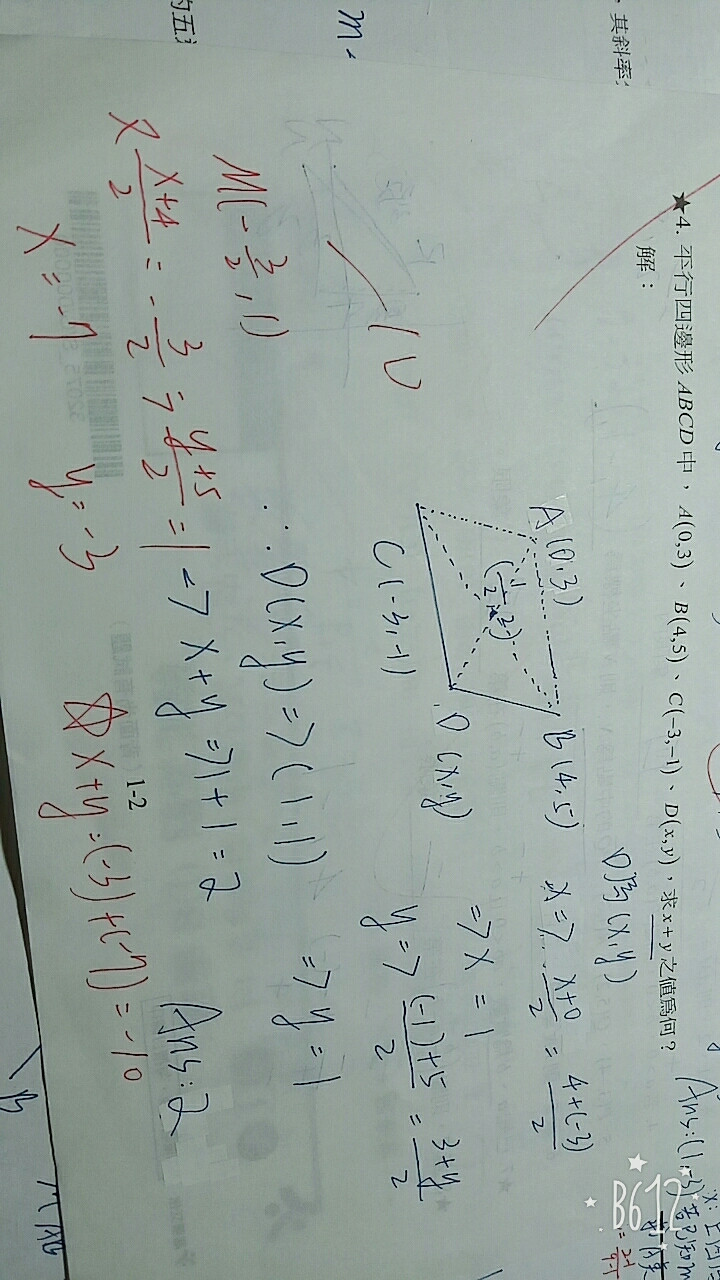 ，其斜率
★4. 平行四邊形 ABCD 中，A(0,3)、B(4,5)、C(-3,-1)、D(x,y)，求 x+y 之值為何？
解：
D為(x,y)
A(0,3)
B(4,5)
C(-3,-1)
D(x,y)
(1/2,2)
x => (x+0)/2 = (4+(-3))/2
=> x = 1
y => ((-1)+5)/2 = (3+y)/2
=> y = 1
∴ D(x,y) => (1,1)
=> x+y => 1+1 = 2
Ans: 2
M(-3/2, 1)
(x+4)/2 = -3/2 => (y+5)/2 = 1
x = -7 y = -3
☆ x+y = (-3)+(-7) = -10
1-2
Ans: (1,-3)
B612